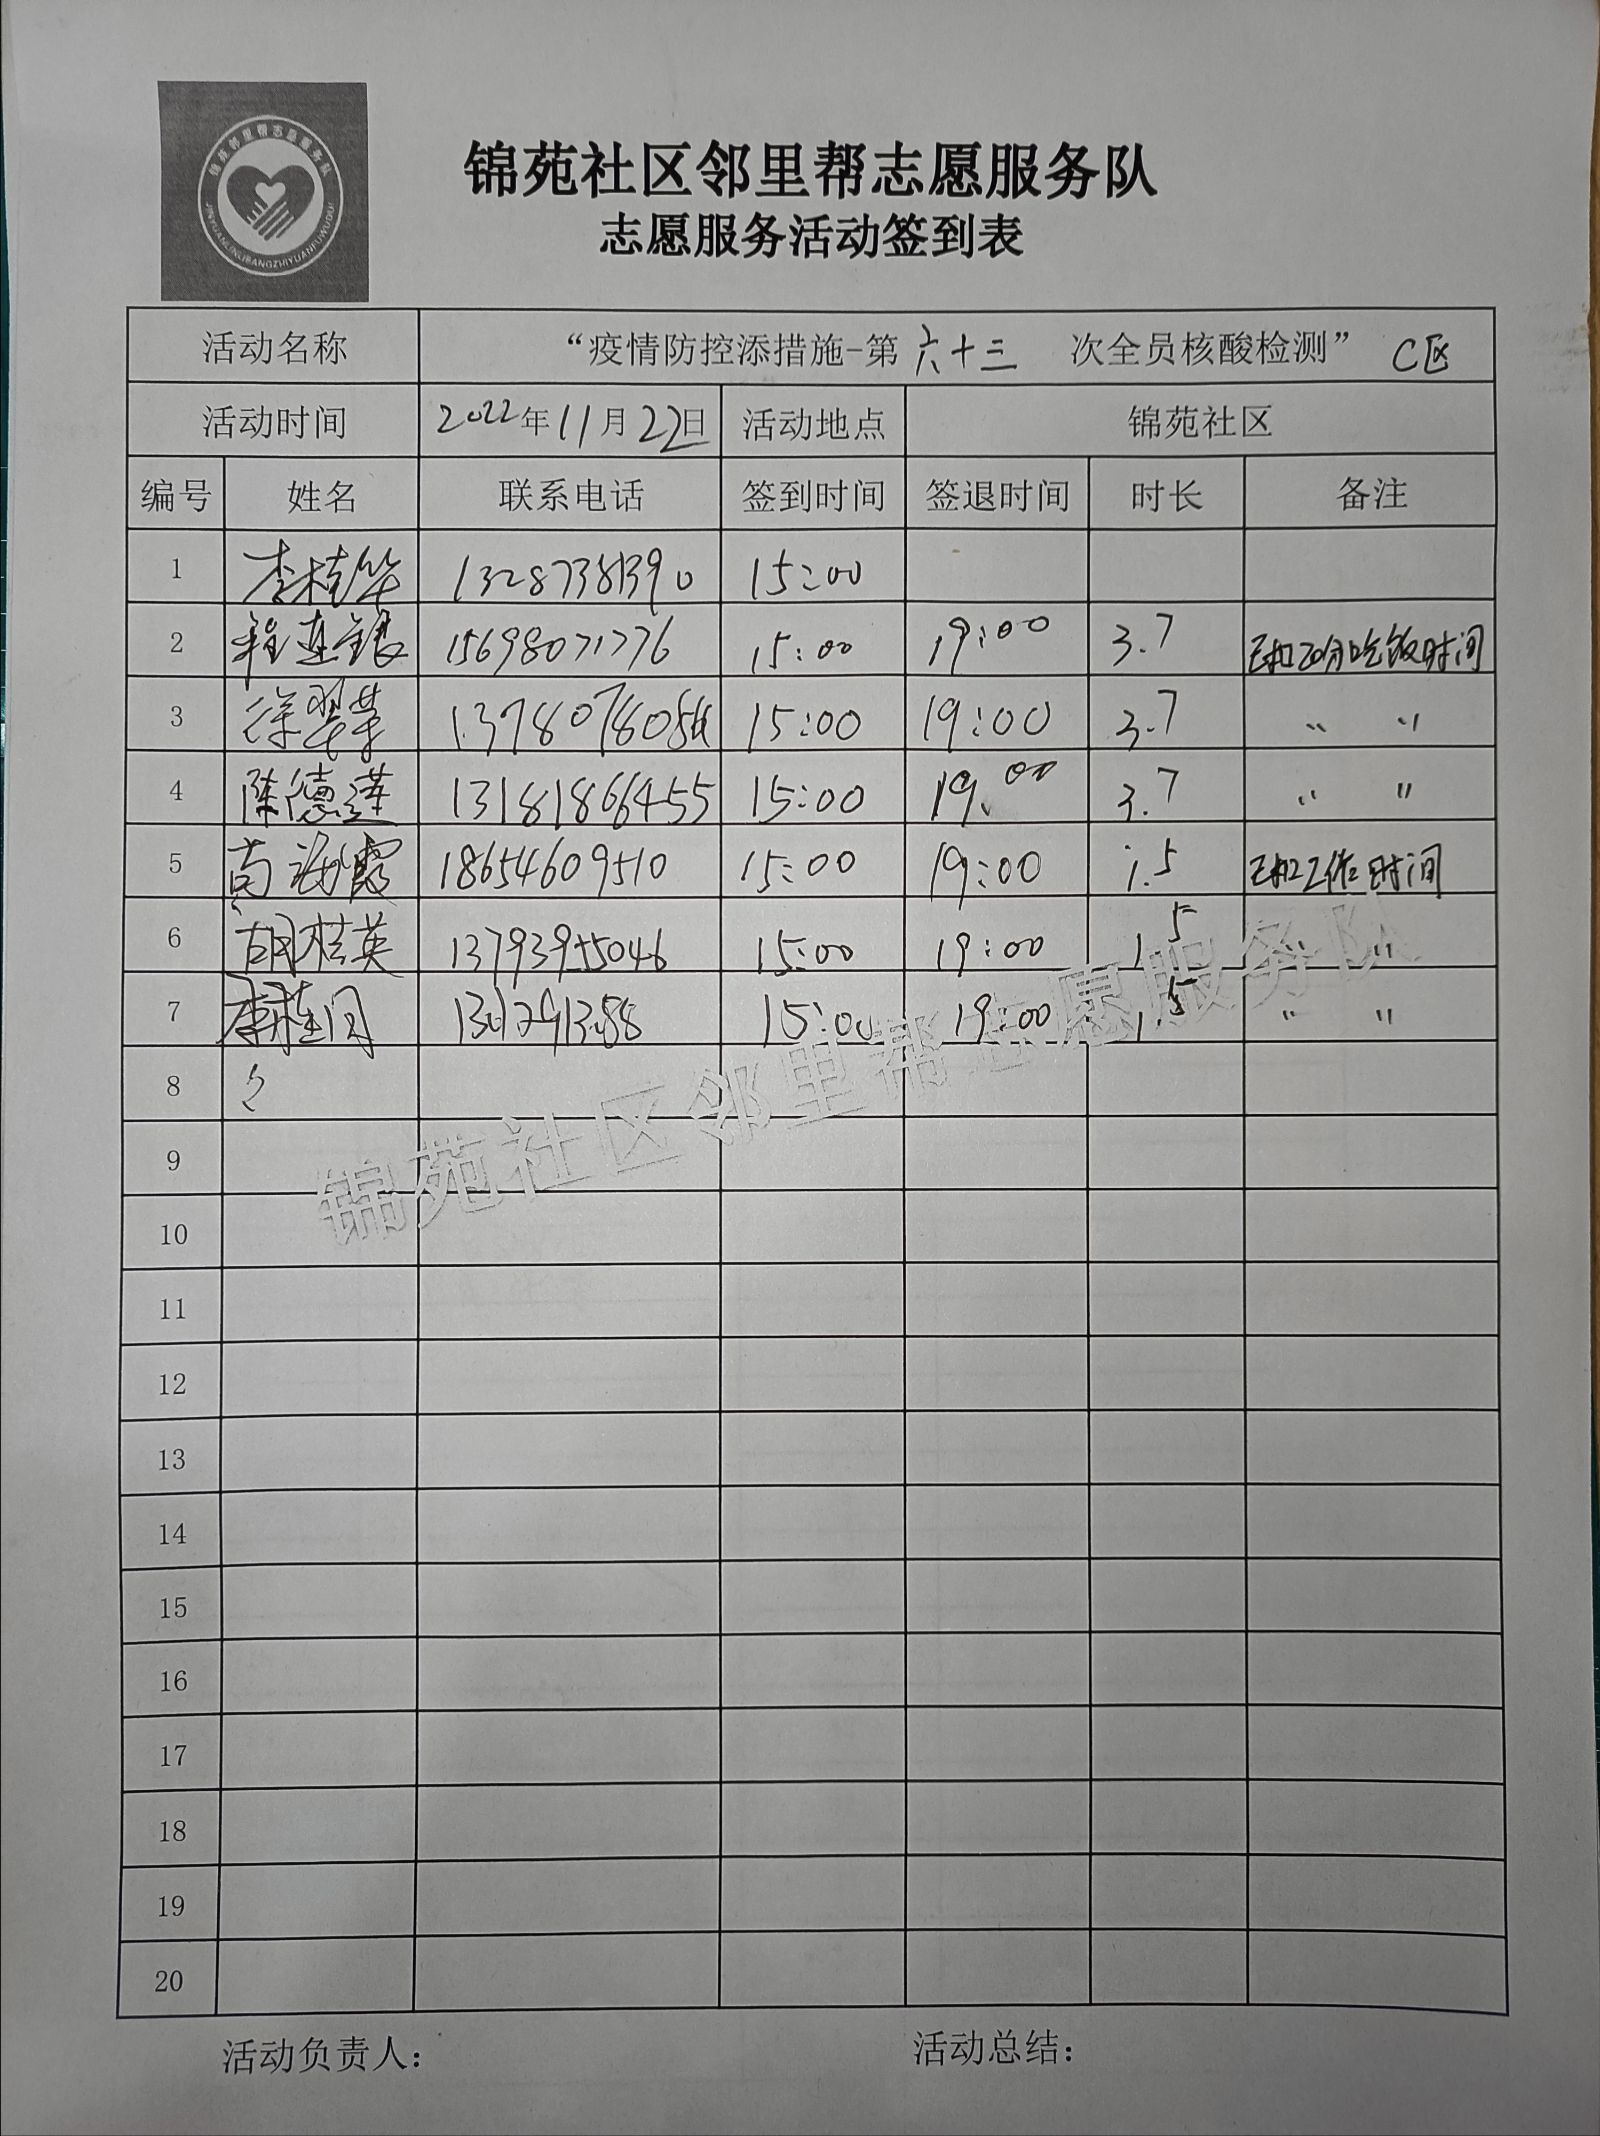 锦苑邻里帮志愿服务队
JINYUANLINLIBANGZHIYUANFUWUDUI
锦苑社区邻里帮志愿服务队
志愿服务活动签到表
活动名称 “疫情防控添措施-第六十三 次全员核酸检测” C区
活动时间 2022年11月22日 活动地点 锦苑社区
编号 姓名 联系电话 签到时间 签退时间 时长 备注
1 李桂华 13287381390 15:00
2 程连银 15698071776 15:00 19:00 3.7 已扣20分吃饭时间
3 徐翠荣 15:00 19:00 3.7 〃 〃
4 陈德莲 13181866455 15:00 19:00 3.7 〃 〃
5 尚海霞 18654609510 15:00 19:00 1.5 已扣工作时间
6 胡桂英 13793955046 15:00 19:00 1.5 〃 〃
7 李桂 15:00 19:00 1.5 〃 〃
8
9
10
11
12
13
14
15
16
17
18
19
20
锦苑社区邻里帮志愿服务队
活动负责人： 活动总结：